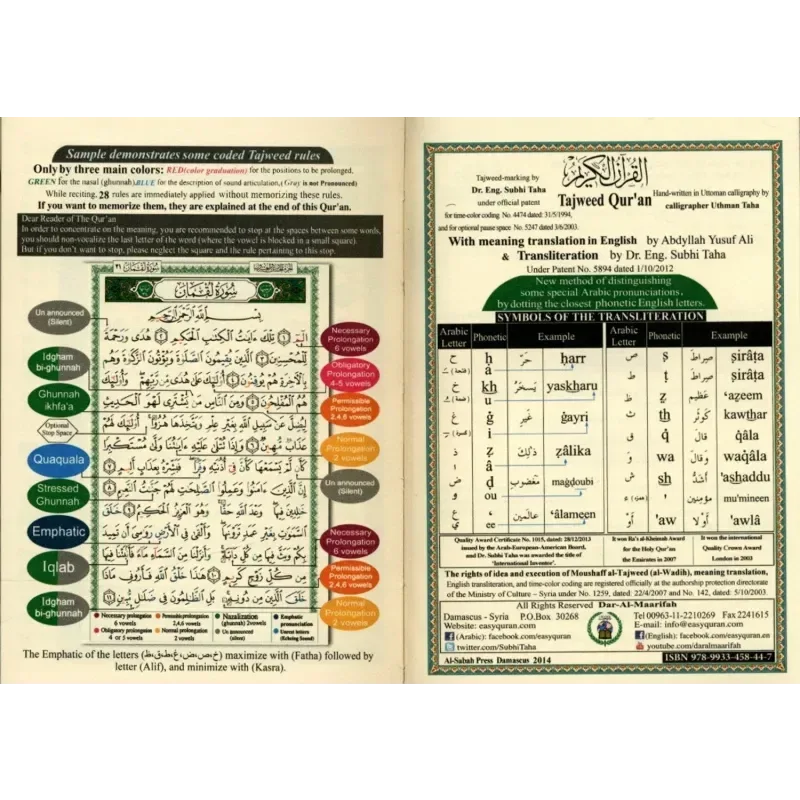 Sample demonstrates some coded Tajweed rules
Only by three main colors: RED(color graduation) for the positions to be prolonged,
GREEN for the nasal (ghunnah),BLUE for the description of sound articulation, (Gray: is not Pronounced)
While reciting, 28 rules are immediately applied without memorizing these rules.
If you want to memorize them, they are explained at the end of this Qur'an.
Dear Reader of The Qur'an
In order to concentrate on the meaning, you are recommended to stop at the spaces between some words,
you should non-vocalize the last letter of the word (where the vowel is blocked in a small square).
But if you don't want to stop, please neglect the square and the rule pertaining to this stop.
سُورَةُ لُقْمَان
بِسْمِ اللَّهِ الرَّحْمَٰنِ الرَّحِيمِ
الٓمٓ ١ تِلْكَ ءَايَٰتُ الْكِتَٰبِ الْحَكِيمِ ٢ هُدًى وَرَحْمَةً
لِّلْمُحْسِنِينَ ٣ الَّذِينَ يُقِيمُونَ الصَّلَوٰةَ وَيُؤْتُونَ الزَّكَوٰةَ وَهُم
بِالْءَاخِرَةِ هُمْ يُوقِنُونَ ٤ أُولَٰٓئِكَ عَلَىٰ هُدًى مِّن رَّبِّهِمْ وَأُولَٰٓئِكَ
هُمُ الْمُفْلِحُونَ ٥ وَمِنَ النَّاسِ مَن يَشْتَرِى لَهْوَ الْحَدِيثِ
لِيُضِلَّ عَن سَبِيلِ اللَّهِ بِغَيْرِ عِلْمٍ وَيَتَّخِذَهَا هُزُوًا أُولَٰٓئِكَ لَهُمْ
عَذَابٌ مُّهِينٌ ٦ وَإِذَا تُتْلَىٰ عَلَيْهِ ءَايَٰتُنَا وَلَّىٰ مُسْتَكْبِرًا
كَأَن لَّمْ يَسْمَعْهَا كَأَنَّ فِىٓ أُذُنَيْهِ وَقْرًا فَبَشِّرْهُ بِعَذَابٍ أَلِيمٍ ٧
إِنَّ الَّذِينَ ءَامَنُوا وَعَمِلُوا الصَّٰلِحَٰتِ لَهُمْ جَنَّٰتُ النَّعِيمِ ٨
خَٰلِدِينَ فِيهَا وَعْدَ اللَّهِ حَقًّا وَهُوَ الْعَزِيزُ الْحَكِيمُ ٩ خَلَقَ
السَّمَٰوَٰتِ بِغَيْرِ عَمَدٍ تَرَوْنَهَا وَأَلْقَىٰ فِى الْأَرْضِ رَوَٰسِىَ أَن تَمِيدَ
بِكُمْ وَبَثَّ فِيهَا مِن كُلِّ دَآبَّةٍ وَأَنزَلْنَا مِنَ السَّمَآءِ مَآءً فَأَنۢبَتْنَا فِيهَا
مِن كُلِّ زَوْجٍ كَرِيمٍ ١٠ هَٰذَا خَلْقُ اللَّهِ فَأَرُونِى مَاذَا
خَلَقَ الَّذِينَ مِن دُونِهِ بَلِ الظَّٰلِمُونَ فِى ضَلَٰلٍ مُّبِينٍ ١١
Un announced
(Silent)
Idgham
bi-ghunnah
Ghunnah
ikhfa'a
Optional
Stop Space
Quaquala
Stressed
Ghunnah
Emphatic
Iqlab
Idgham
bi-ghunnah
Necessary
Prolongation
6 vowels
Obligatory
Prolongation
4-5 vowels
Permissible
Prolongation
2,4,6 vowels
Normal
Prolongation
2 vowels
Un announced
(Silent)
Necessary
Prolongation
6 vowels
Permissible
Prolongation
2,4,6 vowels
Normal
Prolongation
2 vowels
Necessary prolongation 6 vowels
Permissible prolongation 2,4,6 vowels
Nazalization (ghunnah) 2vowels
Emphatic pronunciation
Obligatory prolongation 4 or 5 vowels
Normal prolongation 2 vowels
Un announced (silent)
Unrest letters (Echoing Sound)
The Emphatic of the letters (خ،ص،ض،غ،ط،ق،ظ) maximize with (Fatha) followed by
letter (Alif), and minimize with (Kasra).
القرآن الكريم
Tajweed Qur'an
Tajweed-marking by
Dr. Eng. Subhi Taha
under official patent
for time-color coding No. 4474 dated: 31/5/1994,
and for optional pause space No. 5247 dated 3/6/2003.
Hand-written in Uttoman calligraphy by
calligrapher Uthman Taha
With meaning translation in English by Abdyllah Yusuf Ali
& Transliteration by Dr. Eng. Subhi Taha
Under Patent No. 5894 dated 1/10/2012
New method of distinguishing
some special Arabic pronunciations,
by dotting the closest phonetic English letters.
SYMBOLS OF THE TRANSLITERATION
Arabic Letter Phonetic Example Arabic Letter Phonetic Example
ح ḥ حَرّ ḥarr ص ṣ صِرَاطَ ṣirâṭa
(فتحة) a ط ṭ صِرَاطَ ṣirâṭa
خ kh يَسْخَرُ yaskharu ظ ẓ عَظِيم ‘aẓeem
u ث th كَوْثَر kawthar
غ ġ غَيْرِ ġayri ق q̇ قَالَ q̇âla
(كسرة) i و wa وَقَالَ waq̇âla
ذ z̧ ذَٰلِكَ z̧âlika ش sh أَشَدُّ 'ashaddu
ا â (همزة) ء ' مُؤْمِنِين mu'mineen
ض ḍ مَغْضُوبِ maġdoubi أَوْ 'aw أَوْلَا 'awlâ
و ou
ع ‘ عَالَمِين ‘âlameen
ي ee
Quality Award Certificate No. 1015, dated: 28/12/2013
issued by the Arab-European-American Board,
and Dr. Subhi Taha was awarded the title of
'International Inventor'.
It won Ra's al-Khaimah Award
for the Holy Qur'an
the Emirates in 2007
It won the international
Quality Crown Award
London in 2003
The rights of idea and execution of Moushaff al-Tajweed (al-Wadih), meaning translation,
English transliteration, and time-color coding are registered officially at the authorship protection directorate
of the Ministry of Culture – Syria under No. 1259, dated: 22/4/2007 and No. 142, dated: 5/10/2003.
All Rights Reserved Dar-Al-Maarifah
Damascus - Syria P.O.Box 30268 Tel 00963-11-2210269 Fax 2241615
Website: easyquran.com E-mail: info@easyquran.com
(Arabic): facebook.com/easyquran (English): facebook.com/easyquran.en
twitter.com/SubhiTaha youtube.com/daralmaarifah
Al-Sabah Press Damascus 2014 ISBN 978-9933-458-44-7